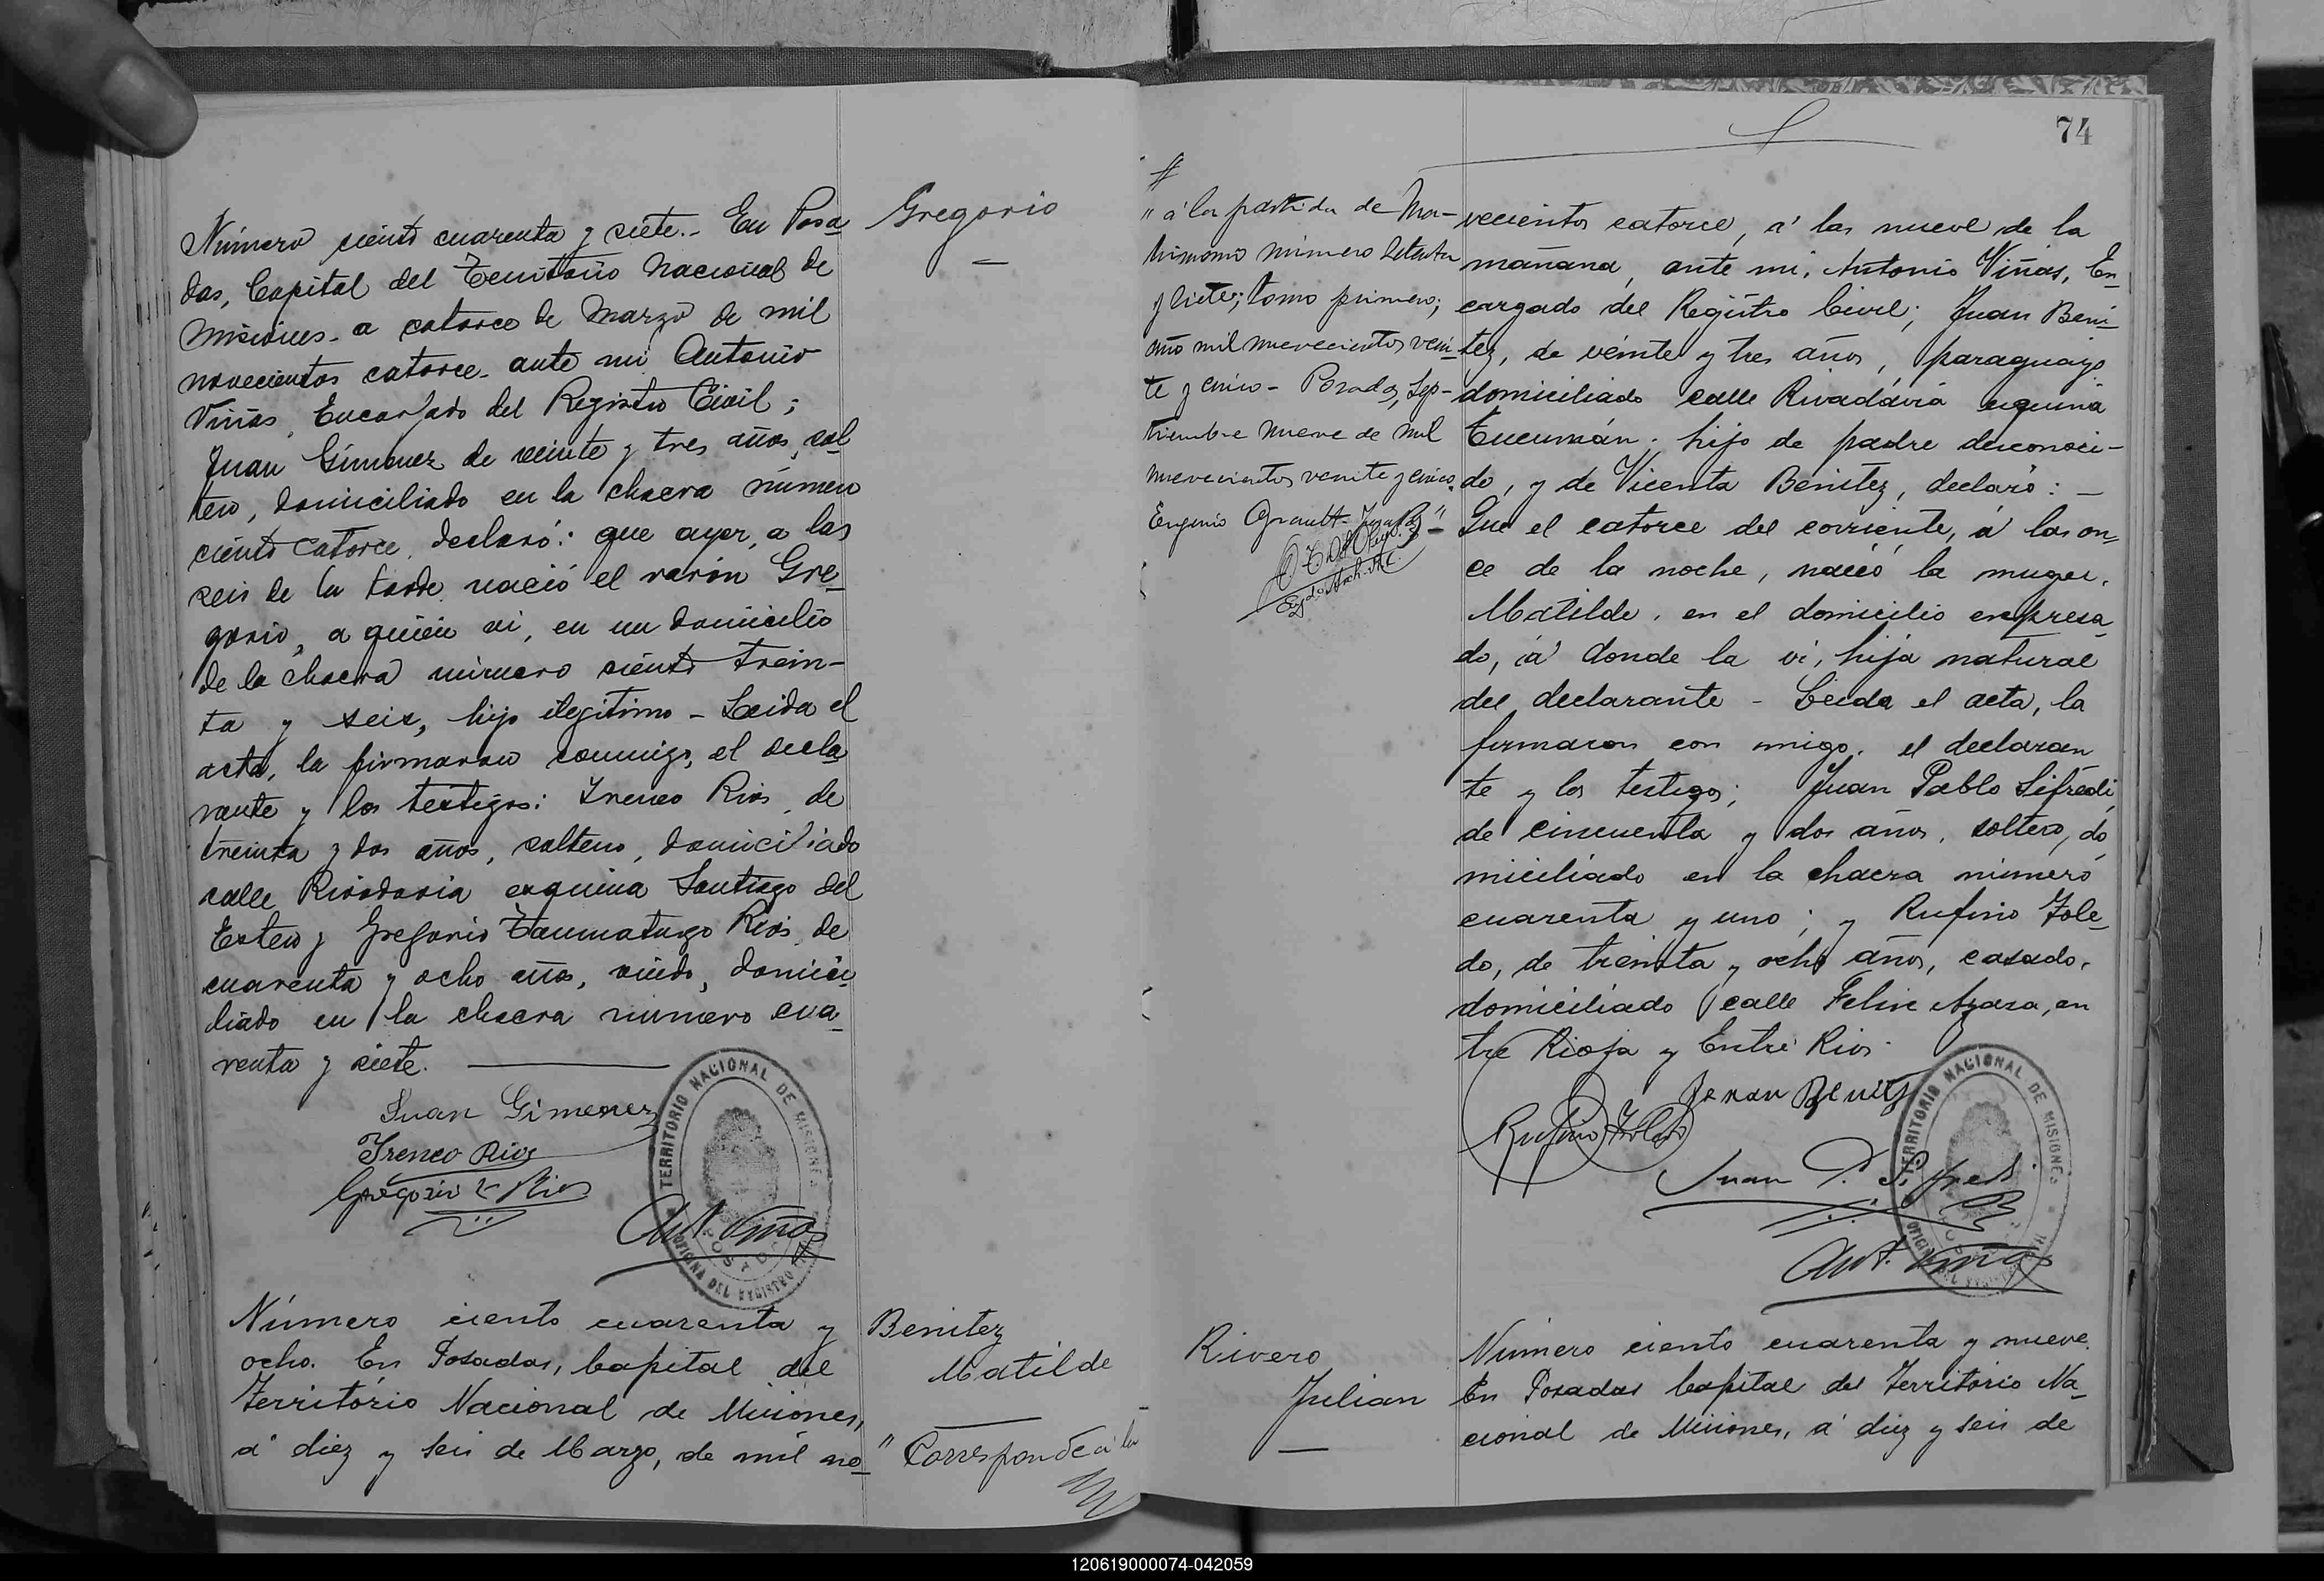 Gregorio
Número ciento cuarenta y siete.- En Posa
das, Capital del Territorio Nacional de
Misiones- a catorce de Marzo de mil
novecientos catorce- ante mi Antonio
Viñas, Encargado del Registro Civil;
Juan Gimenez de veinte y tres años, sol
tero, domiciliado en la chacra número
ciento catorce, declaró: que ayer, a las
seis de la tarde nació el varón Gre-
gorio, a quien vi, en un domicilio
de la chacra número ciento trein-
ta y seis, hijo ilegitimo - Leida el
acta, la firmaron conmigo, el decla
rante y los testigos: Ireneo Rios, de
treinta y dos años, soltero, domiciliado
calle Rivadavia esquina Santiago del
Estero y Gregorio Taumaturgo Rios, de
cuarenta y ocho años, viudo, domici-
liado en la chacra numero cua-
renta y siete.
Juan Gimenez
Ireneo Rios
Gregorio T. Rios
Ant. Viñas
TERRITORIO NACIONAL DE MISIONES
OFICINA DEL REGISTRO CIVIL
POSADAS
Benitez
Matilde
Número ciento cuarenta y
ocho. En Posadas, Capital del
Territorio Nacional de Misiones,
á diez y seis de Marzo, de mil no-
" Corresponde a la
74
#
" á la partida de Ma-
trimonio número setenta
y siete; tomo primero;
año mil nuevecientos vein-
te y cinco - Posadas, Sep-
tiembre nueve de mil
nuevecientos veinte y cinco.
Eugenio
vecientos catorce, á las nueve de la
mañana, ante mi, Antonio Viñas, En-
cargado del Registro Civil; Juan Beni-
tez, de veinte y tres años, paraguayo
domiciliado calle Rivadavia esquina
Tucumán, hijo de padre desconoci-
do, y de Vicenta Benitez, declaró: -
Que el catorce del corriente, á las on-
ce de la noche, nació la muger,
Matilde, en el domicilio expresa-
do, á donde la vi, hija natural
del declarante - Leida el acta, la
firmaron con migo, el declaran
te y los testigos; Juan Pablo Sifredi,
de cincuenta y dos años, soltero, do
miciliado en la chacra número
cuarenta y uno; y Rufino Tole-
do, de treinta y ocho años, casado,
domiciliado calle Felix Azara, en
tre Rioja y Entre Rios.
Juan Benitez
Rufino Toledo
Juan P. Sifredi
Ant. Viñas
TERRITORIO NACIONAL DE MISIONES
OFICINA DEL REGISTRO CIVIL
POSADAS
Rivero
Julian
Número ciento cuarenta y nueve.
En Posadas Capital del Territorio Na-
cional de Misiones, á diez y seis de
120619000074-042059